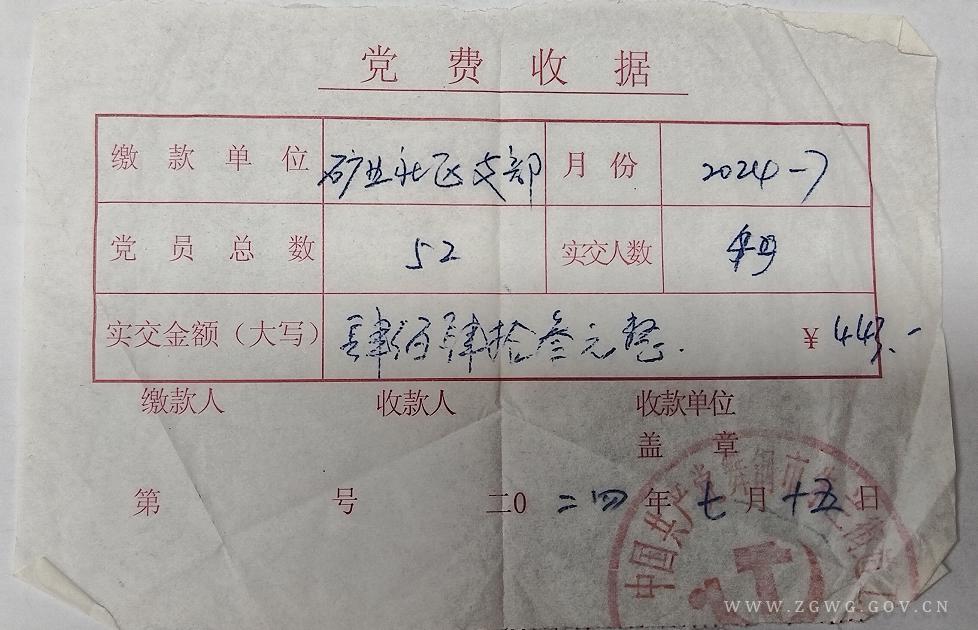 党费收据
缴款单位 矿业社区支部 月份 2024-7
党员总数 52 实交人数
实交金额（大写） 肆佰肆拾叁元整. ¥ 443.-
缴款人 收款人 收款单位
盖章
第 号 二0二四年七月十五日
中国共产党舞钢市
WWW.ZGWG.GOV.CN